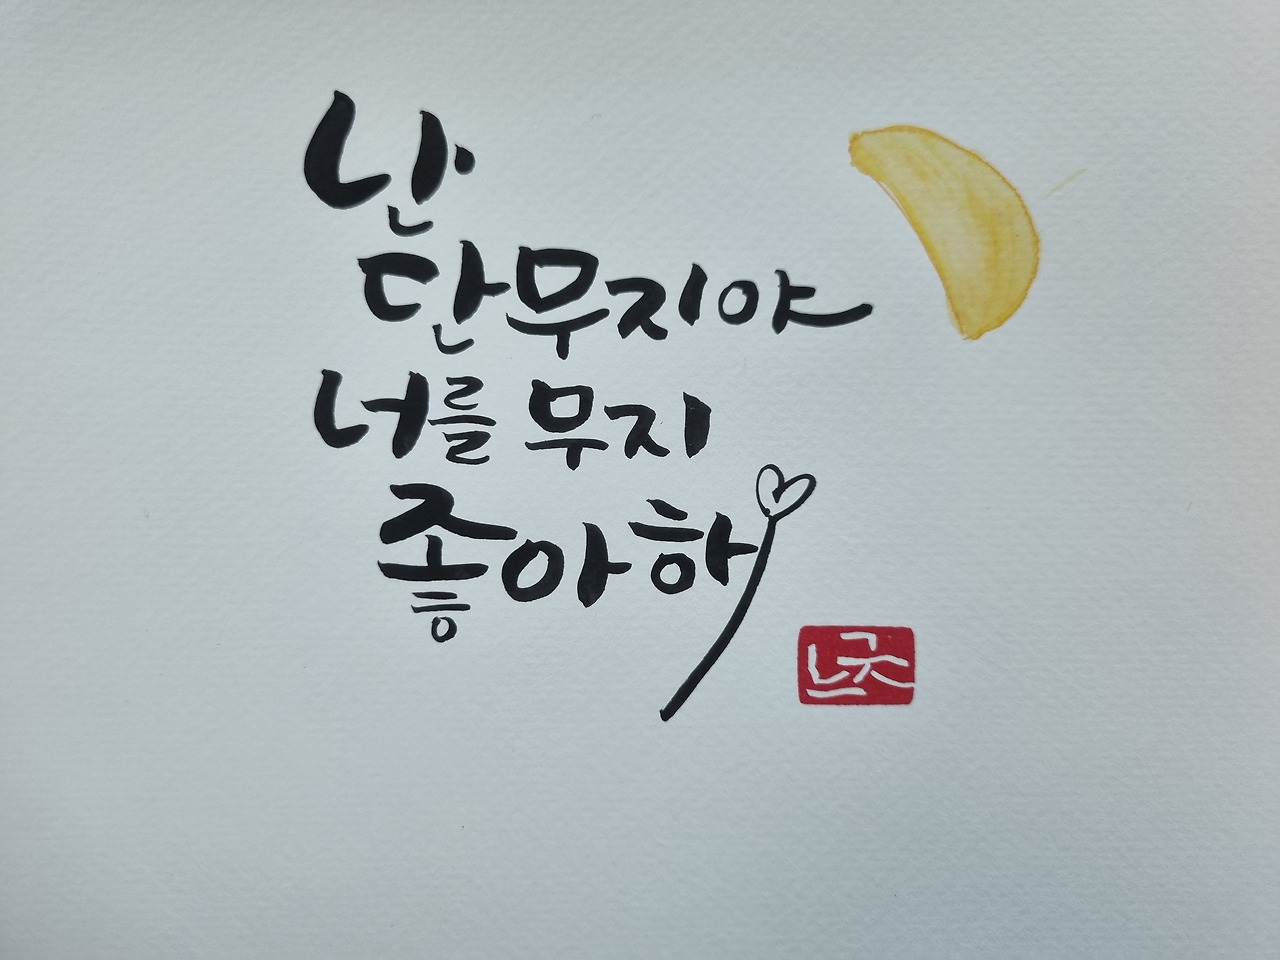 난
단무지야
너를 무지
좋아해